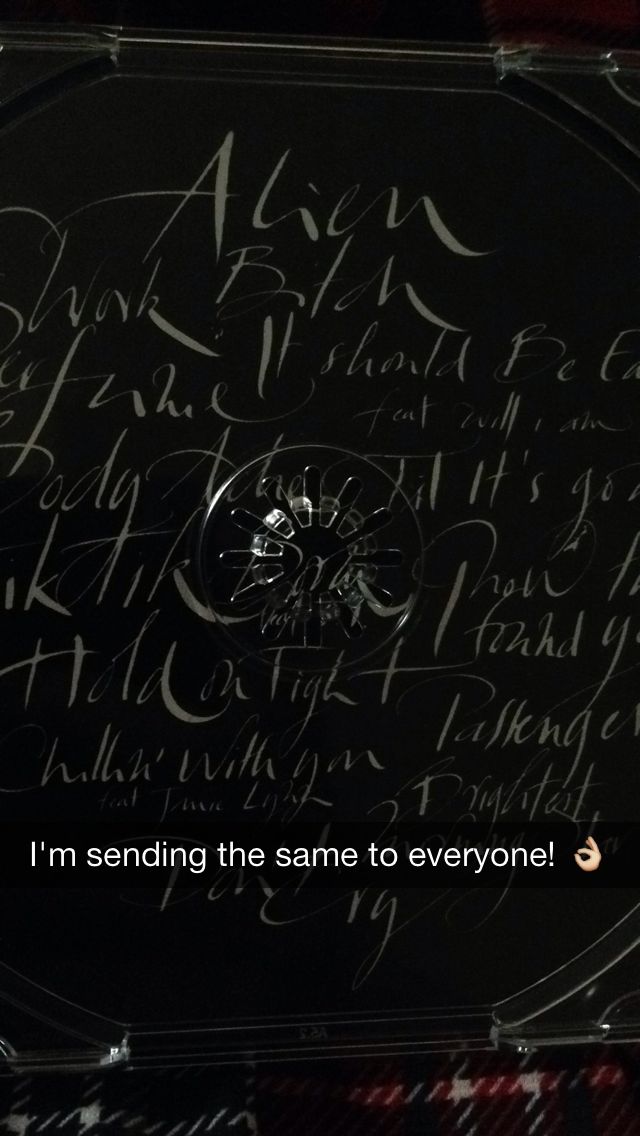 Alien
Work Bitch
Perfume It should Be Ea
feat will i am
Body Ache Til It's go
ik Tik Boom Now th
found yo
Hold on Tight
Passenger
Chillin' with you
feat Jamie Lynn Brightest
I'm sending the same to everyone! 👌🏼
Don't Cry